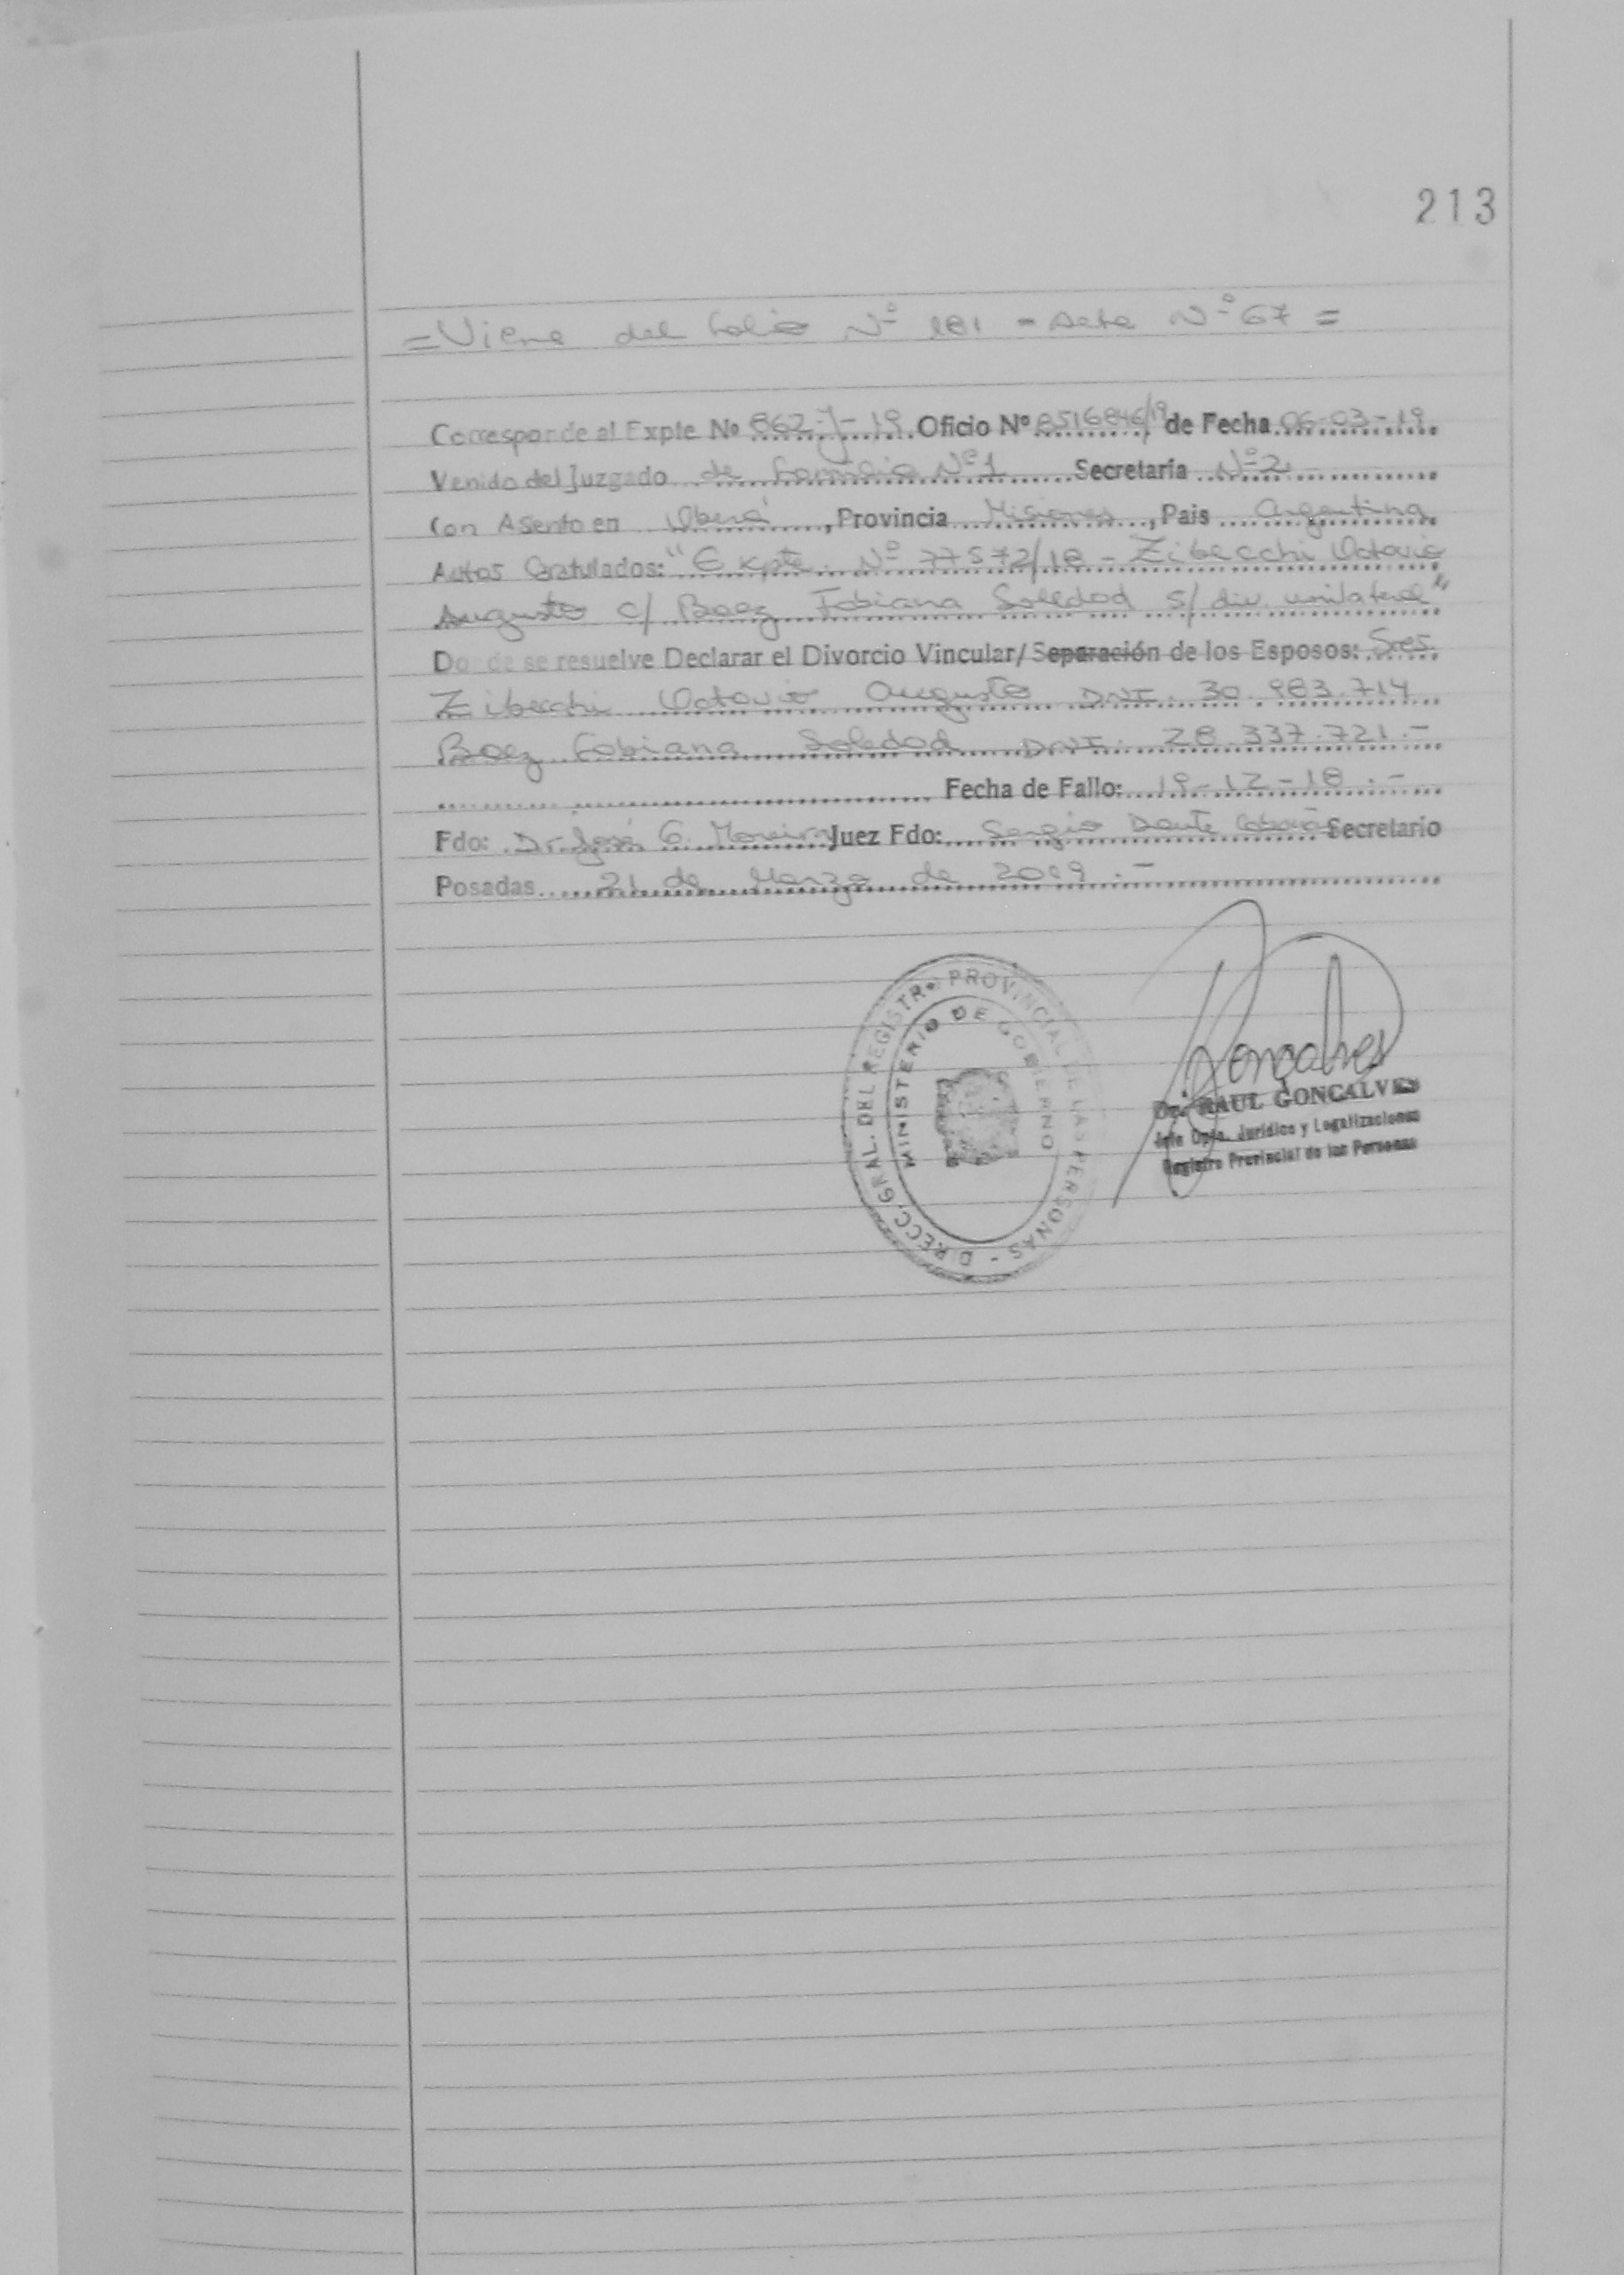 213
= Viene del folio Nº 181 - Acta Nº 67 =
Corresponde al Expte Nº 862-J-19 Oficio Nº 8516846/19 de Fecha 06-03-19
Venido del Juzgado de Familia Nº 1 Secretaría Nº 2
Con Asento en Oberá, Provincia Misiones, Pais Argentina
Autos Caratulados: "Expte. Nº 77572/18 - Zibecchi Octavio
Augusto c/ Baez Fabiana Soledad s/ div. unilateral"
Donde se resuelve Declarar el Divorcio Vincular/Separación de los Esposos: Sres
Zibecchi Octavio Augusto DNI. 30.983.714
Baez Fabiana Soledad DNI. 28.337.721.-
Fecha de Fallo: 19-12-18.-
Fdo: Dr. José G. Moreira Juez Fdo: Sergio Dante Secretario
Posadas 21 de Marzo de 2019.-
DIRECC. GRAL. DEL REGISTRO PROVINCIAL DE LAS PERSONAS -
MINISTERIO DE GOBIERNO
Goncalves
Dr. RAUL GONCALVES
Jefe Dpto. Jurídico y Legalizaciones
Registro Provincial de las Personas